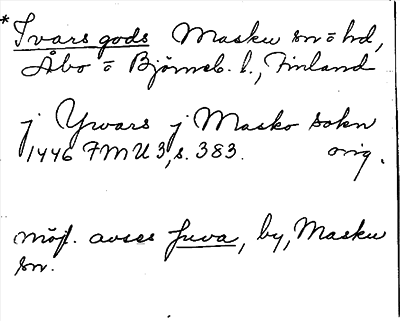 *Ivars gods Masku sn o hd,
Åbo o Björneb. l., Finland
j Ywars j Masko sokn
1446 FMU 3, s. 383. orig.
möjl. avses Juva, by, Masku
sn.